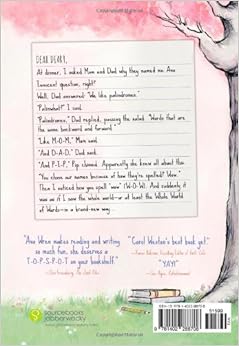 DEAR DIARY,
At dinner, I asked Mom and Dad why they named me Ava.
Innocent question, right?
Well, Dad answered: "We like palindromes."
"Palinwhat?" I said.
"Palindromes," Dad replied, passing the salad. "Words that are
the same backward and forward."
"Like M-O-M," Mom said.
"And D-A-D," Dad said.
"And P-I-P," Pip chimed. Apparently she knew all about this.
"You chose our names because of how they're spelled? Wow."
Then I noticed how you spell "wow" (W-O-W). And suddenly, it
was as if I saw the whole world—or at least the Whole World
of Words—in a brand-new way...
"Ava Wren makes reading and writing
so much fun, she deserves a
T-O-P S-P-O-T on your bookshelf."
"Carol Weston's best book yet."
"YAY!"
sourcebooks
jabberwocky
51599